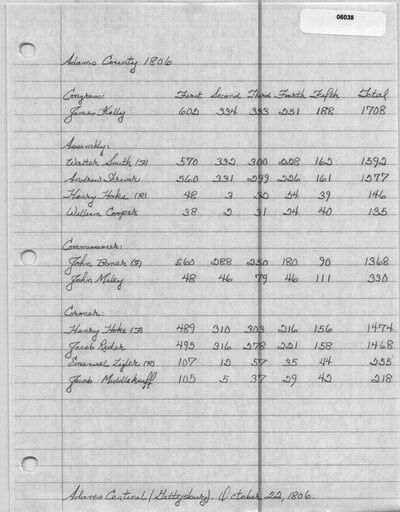 06038
Adams County 1806
Congress: First Second Third Fourth Fifth Total
James Kelly 602 334 333 251 188 1708
Assembly:
Walter Smith (F) 570 332 300 228 162 1592
Andrew Shriver 560 331 299 226 161 1577
Henry Hoke (R) 48 3 32 24 39 146
William Cooper 38 2 31 24 40 135
Commissioner:
John (F) 560 288 250 180 90 1368
John Miley 48 46 79 46 111 330
Coroner:
Henry Hoke (F) 489 310 303 216 156 1474
Jacob Rider 495 316 278 221 158 1468
Emanuel Zigler (R) 107 12 57 35 44 255
Jacob Middlekauff 105 5 37 29 42 218
Adams Centinel (Gettysburg). October 22, 1806.